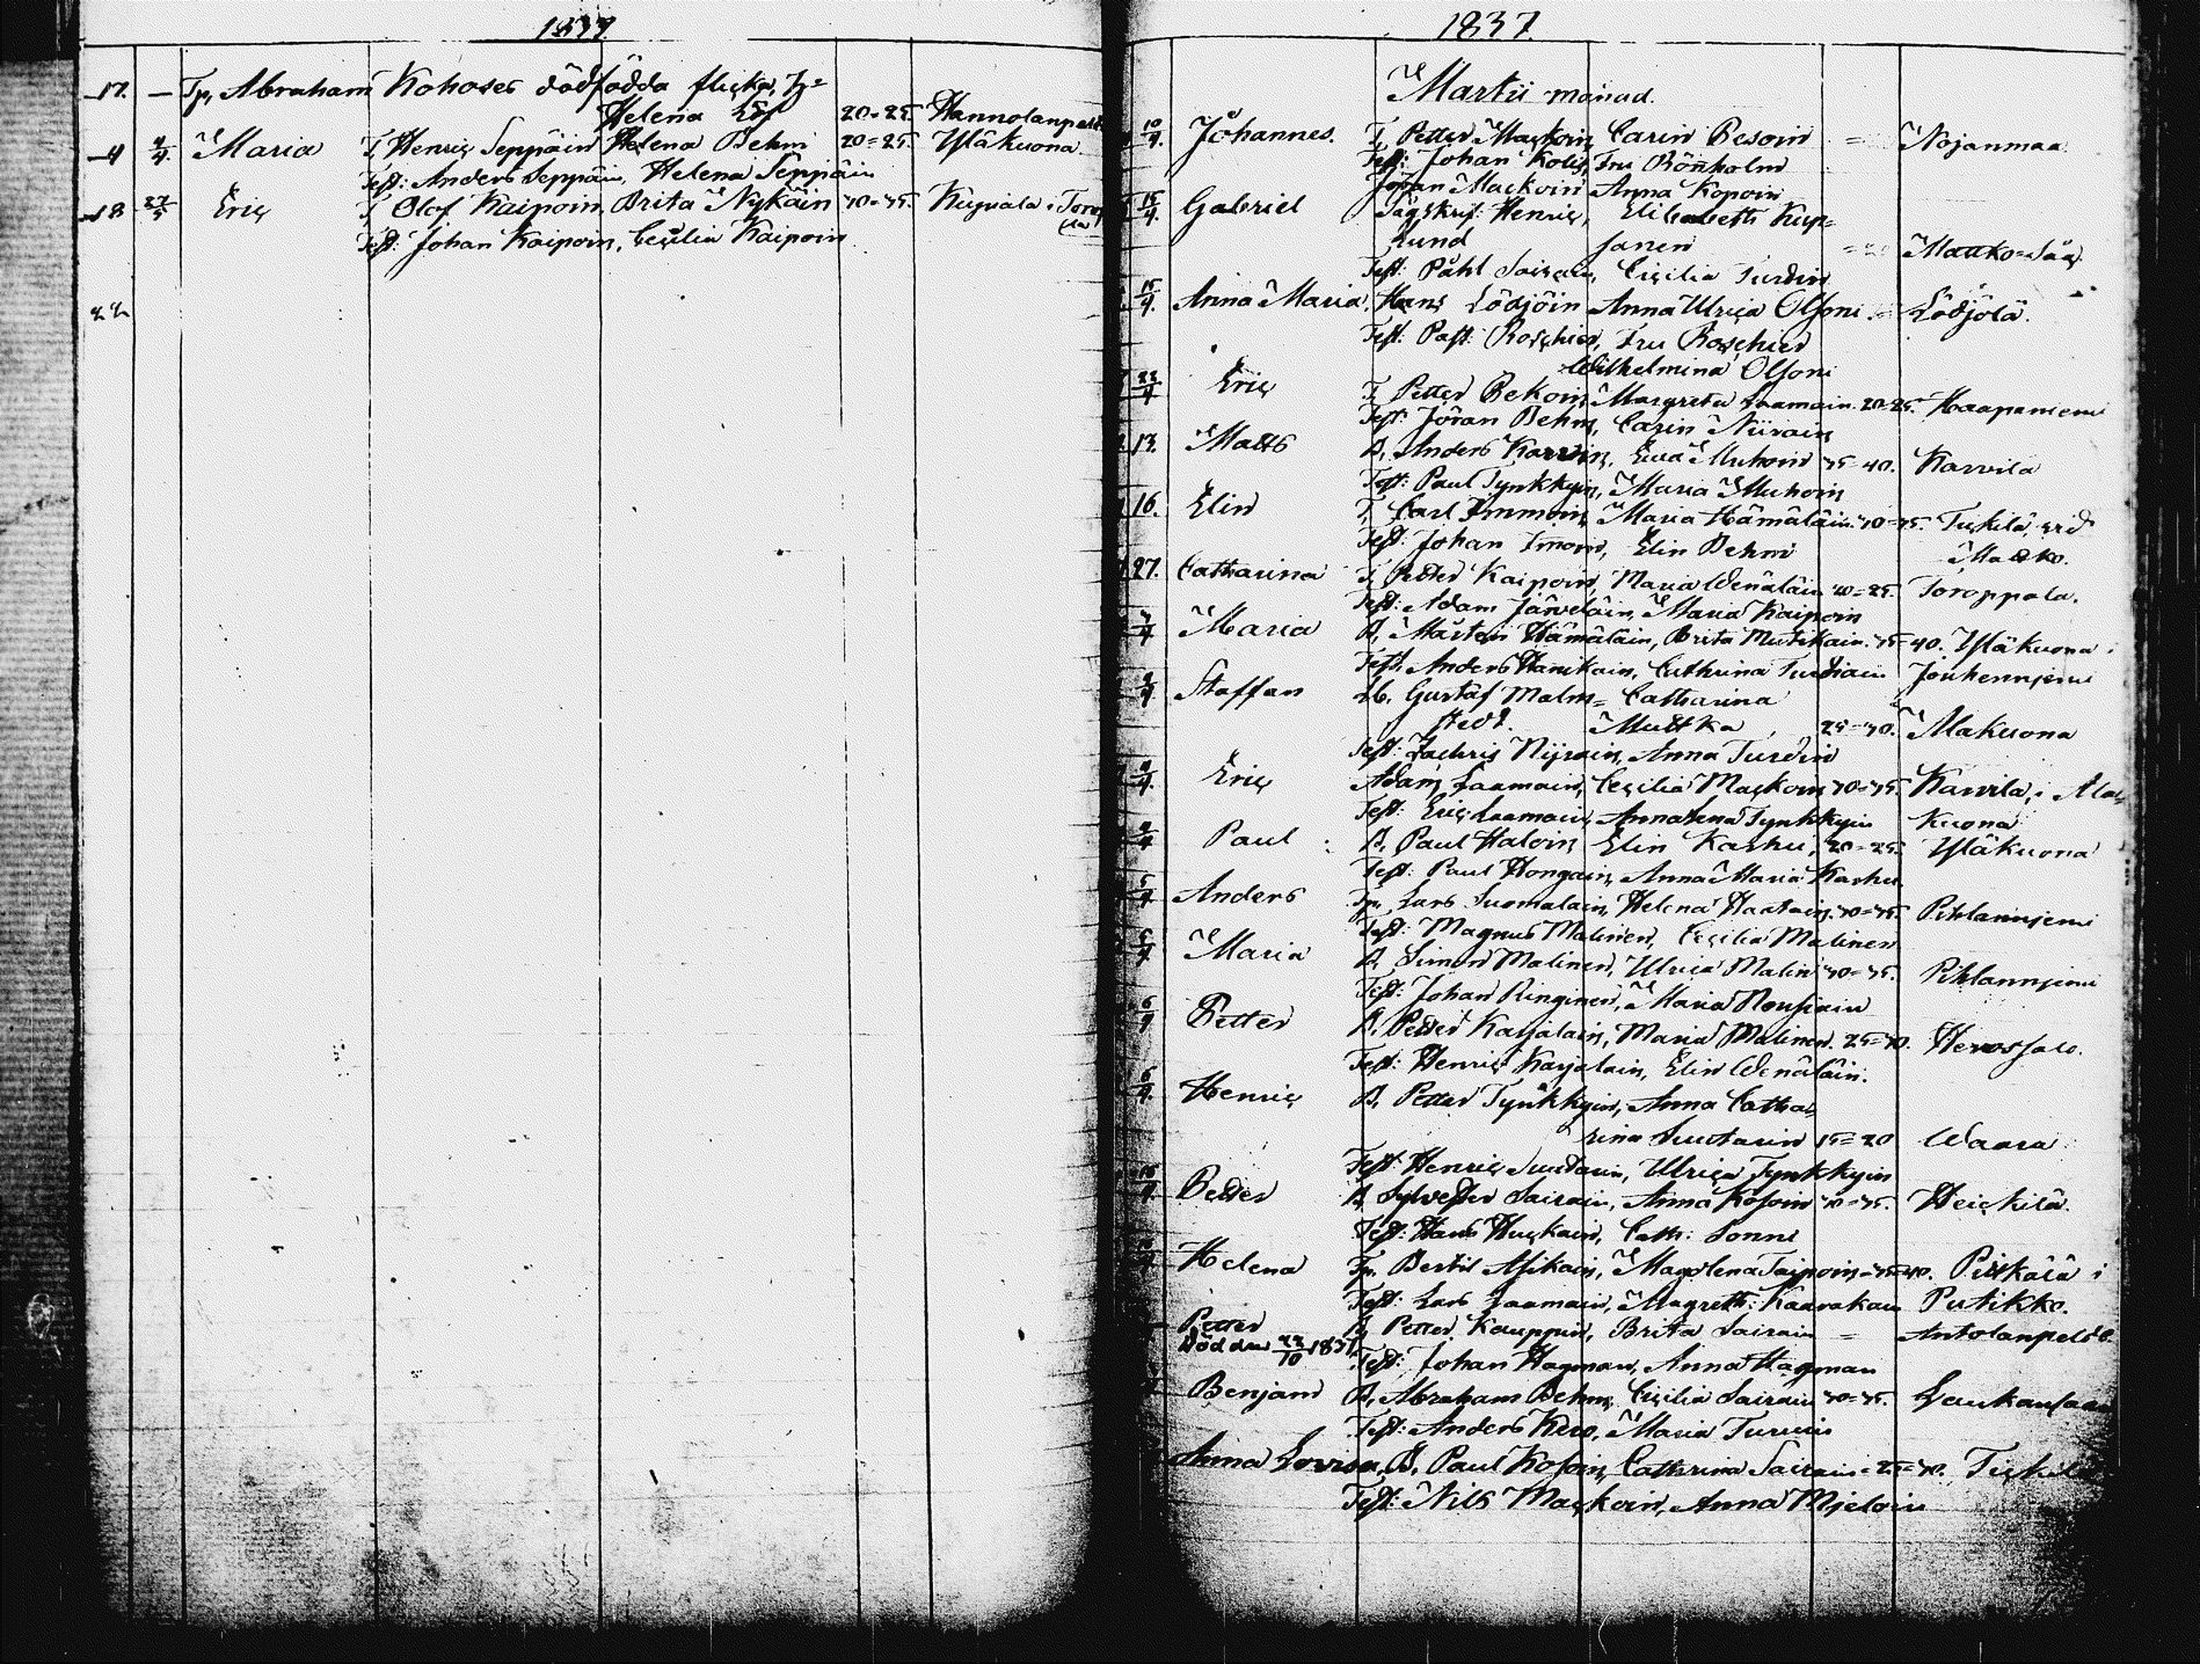 1837.
17. — Tp, Abraham Kohoses dödfödda flicka, Hu=
Helena Löf 20=25. Hannolanpelto
4 4/4. Maria T, Henric Seppäin Helena Behm 20=25. Yläkuona
Test: Anders Seppäin, Helena Seppäin
18 27/5 Eric T, Olof Kaipoin, Brita Nykäin 40=45. Kuivala i Torop
Test: Johan Kaipoin, Cecilia Kaipoin
22
1837.
Martii månad.
10/4. Johannes. T, Petter Mackoin, Carin Besoin = Nojanmaa
Test: Johan Kolis, Fru Rönholm
Jöran Mackoin Anna Kopoin
15/4. Gabriel Sågskrif: Henric, Elisabeth Kup=
Lund janen Mattko=Såg
Test: Påhl Sairain, Cicilia Turdin
15/4. Anna Maria. Hans Lödjöin Anna Ulrica Olsoni = Lödjölä.
Test: Past: Roschier, Fru Roschier
Wilhelmina Olsoni
22/4 Eric T, Petter Bekoin, Margreta Laamain. 20=25. Haapaniemi
Test: Jöran Behm, Carin Niirain
13. Matts B, Anders Karvin, Eva Muhoin 35=40. Karvila
Test: Paul Tynkkyin, Maria Muhoin
16. Elin T, Carl Immoin, Maria Hämäläin. 40=45. Tuckila, vid
Test: Johan Imoin, Elin Behm Matko.
27. Catharina T, Petter Kaipoin, Maria Wenäläin 20=25. Toroppala.
Test: Adam Järveläin, Maria Kaipoin
4/4 Maria B, Mårten Hämäläin, Brita Mutikain. 35=40. Yläkuona i
Test: Anders Hanikain, Cathrina Turdiain Jouhenniemi
4/4 Staffan Gustaf Malm= Catharina
stedt. Muttka 25=30. Alakuona
Test: Zachris Nijrain, Anna Turdin
4/4. Eric Adam Laamain, Cecilia Mackoin 40=45. Karvila, i Ala
Test: Eric Laamain, Anna Lena Tynkkyin kuona
4/4 Paul B, Paul Haloin, Elin Karhu, 20=25. Yläkuona
Test: Paul Hongain, Anna Maria Karhu
5/4 Anders Tp, Lars Suomalain, Helena Haatain. 40=45. Pihlanniemi
Test: Magnus Malinen, Cecilia Malinen
6/4 Maria B, Simon Malinen, Ulrica Malin 40=45. Pihlanniemi
Test: Johan Ringinen, Maria Nousiain
6/4 Petter B, Petter Karjalain, Maria Malinen. 25=30. Hevossalo.
Test: Henric Karjalain, Elin Wenäläin.
6/4. Henric B, Petter Tynkkyin, Anna Catha=
rina Suutarin 15=20 Waara
Test: Henric Suutarin, Ulrica Tynkkyin
Petter B, Sylvester Sairain, Anna Kosoin 40=45. Heickilä
Test: Hans Huckain, Cath: Sonni
Helena Tp, Bertil Asikain, Magdlena Taipoin 35=40. Pitkälä i
Test: Lars Laamain, Magreth: Kaarakain Putikko.
Petter B, Petter Kauppin, Brita Sairain = Antolanpelto.
död den 22/10 1837.
Test: Johan Hagman, Anna Hagman
Benjam B, Abraham Behm, Cicilia Sairain 40=45. Laukansaari
Test: Anders Kero, Maria Turuin
Anna Lovisa, B, Paul Kosoin, Cathrina Sairain. 25=30. Tuckila
Test: Nils Mackoin, Anna Mieloin